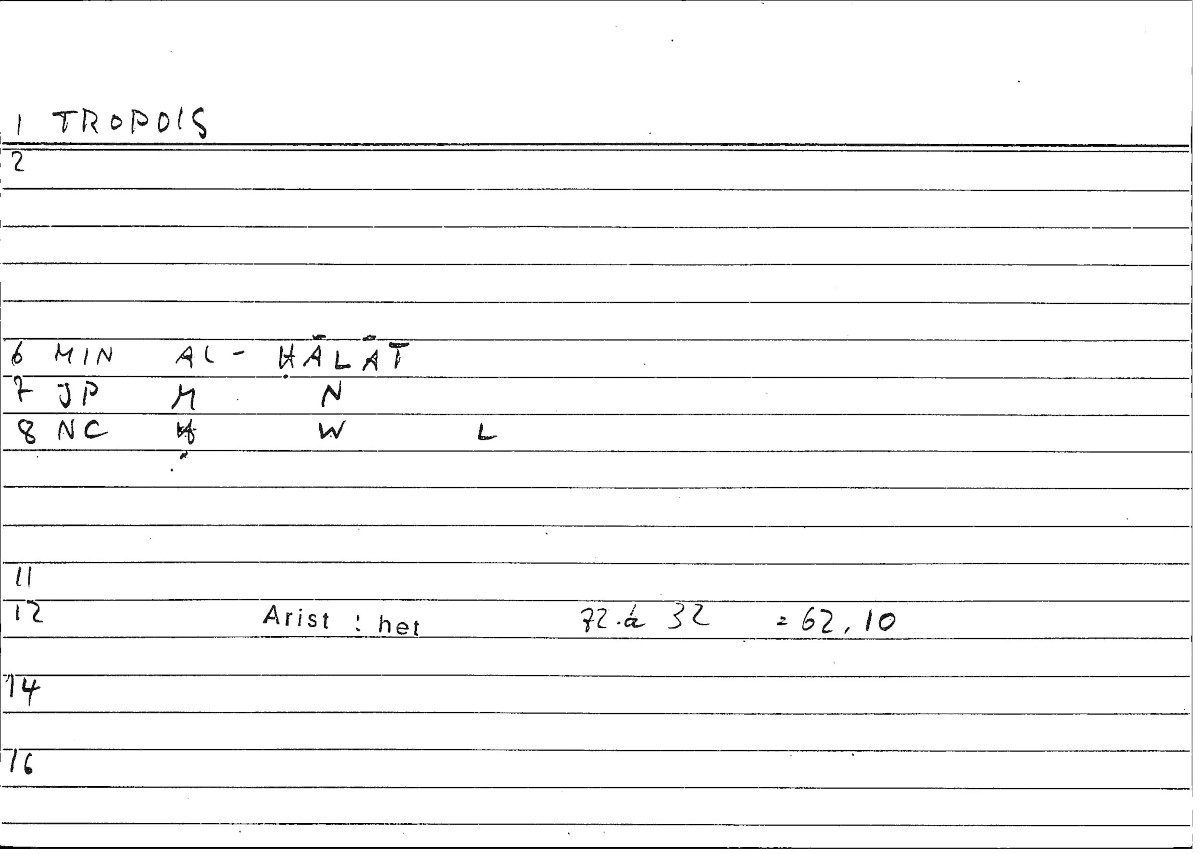 1 TROPOIS
2
6 MIN AL- ḤĀLĀT
7 JP M N
8 NC Ḥ W L
11
12 Arist : het 72.a 32 = 62,10
14
16